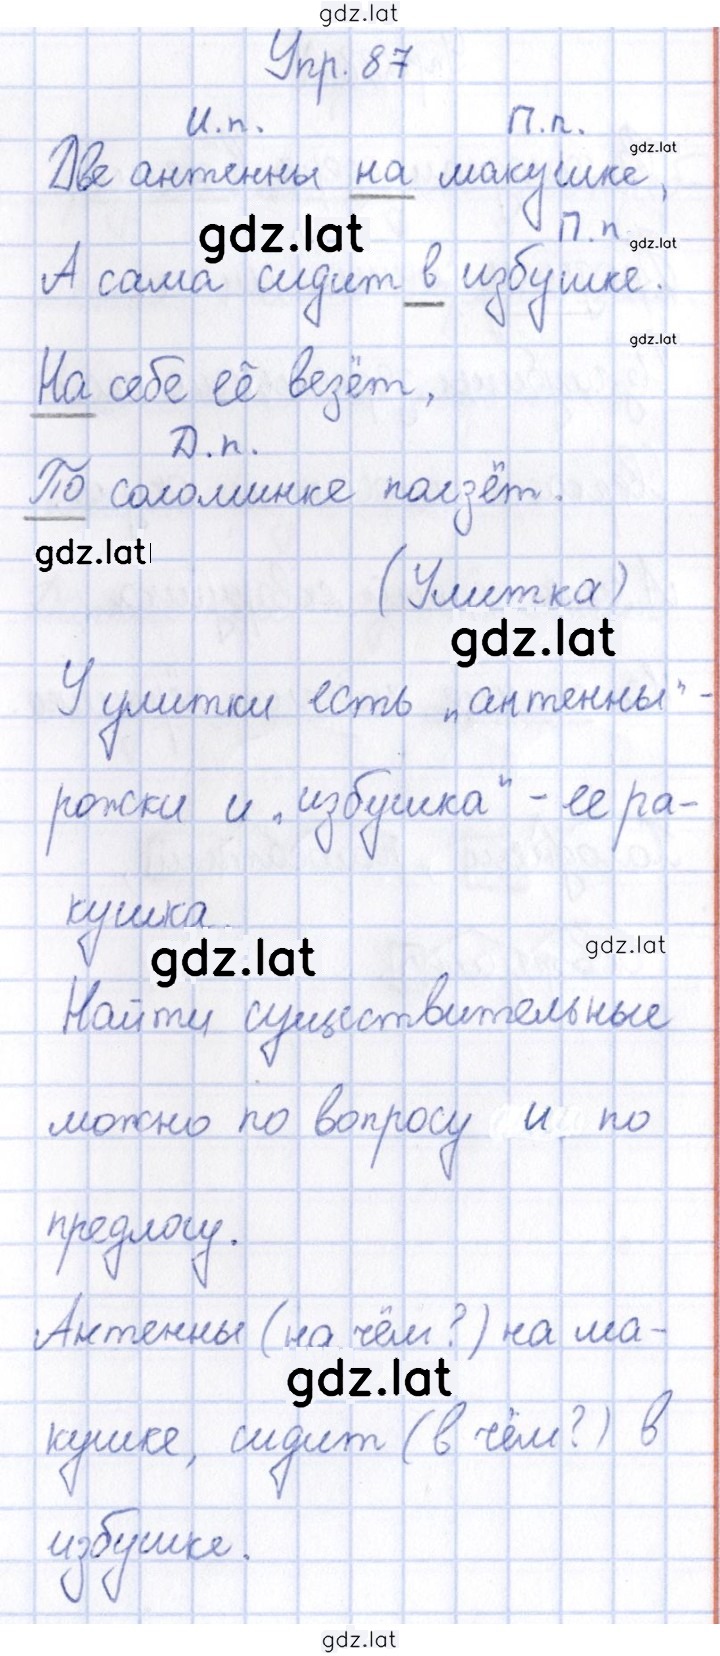 gdz.lat
Упр. 87
И.п. П.п.
Две антенны на макушке, gdz.lat
gdz.lat П.п. gdz.lat
А сама сидит в избушке.
gdz.lat
На себе её везёт,
Д.п.
По соломинке ползёт.
gdz.lat
(Улитка)
gdz.lat
У улитки есть „антенны" -
рожки и „избушка" - ее ра-
кушка.
gdz.lat gdz.lat
Найти существительные
можно по вопросу и по
предлогу.
Антенны (на чём?) на ма-
gdz.lat
кушке, сидит (в чём?) в
избушке.
gdz.lat